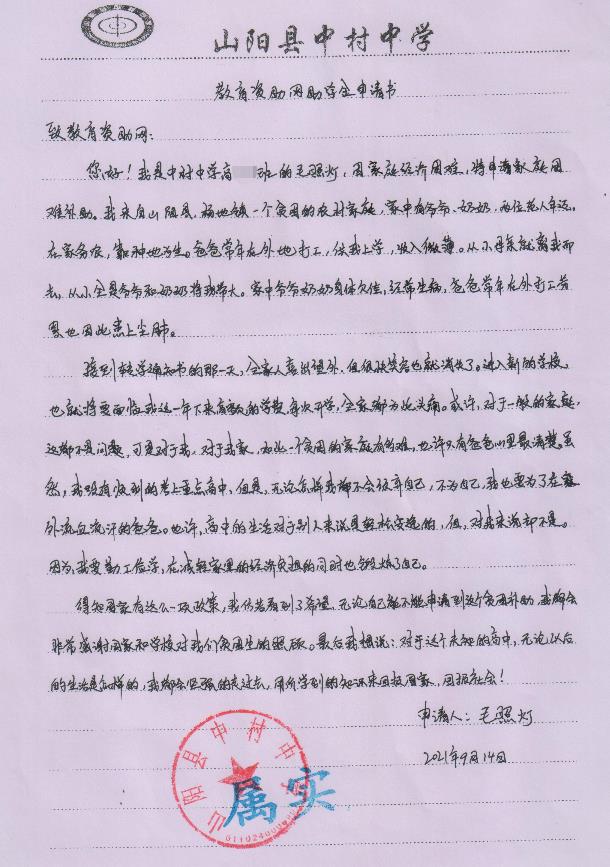 山阳县中村中学
教育资助网助学金申请书
致教育资助网:
您好!我是中村中学高 班的毛照灯,因家庭经济困难,特申请家庭困
难补助。我来自山阳县, 一个贫困的农村家庭,家中有爷爷、奶奶,两位老人年迈,
在家务农,靠种地为生。爸爸常年在外地打工,供我上学,收入微薄。从小母亲就离我而
去,从小全是爷爷和奶奶将我带大。家中爷爷奶奶身体欠佳,经常生病,爸爸常年在外打工
也因此患上尘肺。
接到转学通知书的那一天,全家人喜出望外,但很快笑容也就消失了。进入新的学校,
也就将要面临我这一年下来高额的学费,每次开学,全家都为此头痛。或许,对于一般的家庭,
这都不是问题,可是对于我,对于我家,如此一个贫困的家庭有多难,也许只有爸爸心里最清楚,虽
然,我没有收到的考上重点高中,但是,无论怎样我都不会放弃自己,不为自己,我也要为了在
外流血流汗的爸爸。也许,高中的生活对于别人来说是轻松实选的,但,对我来说却不是。
因为,我要勤工俭学,在减轻家里的经济负担的同时也锻炼了自己。
得知国家有这么一项政策,我仿若看到了希望,无论自己能不能申请到这个贫困补助,我都会
非常感谢国家和学校对我们贫困生的照顾。最后我想说:对于这个未知的高中,无论以后
的生活是怎样的,我都会坚强的走过去,用所学到的知识来回报国家,回报社会!
申请人:毛照灯
2021年9月14日
山阳县中村中学
属实